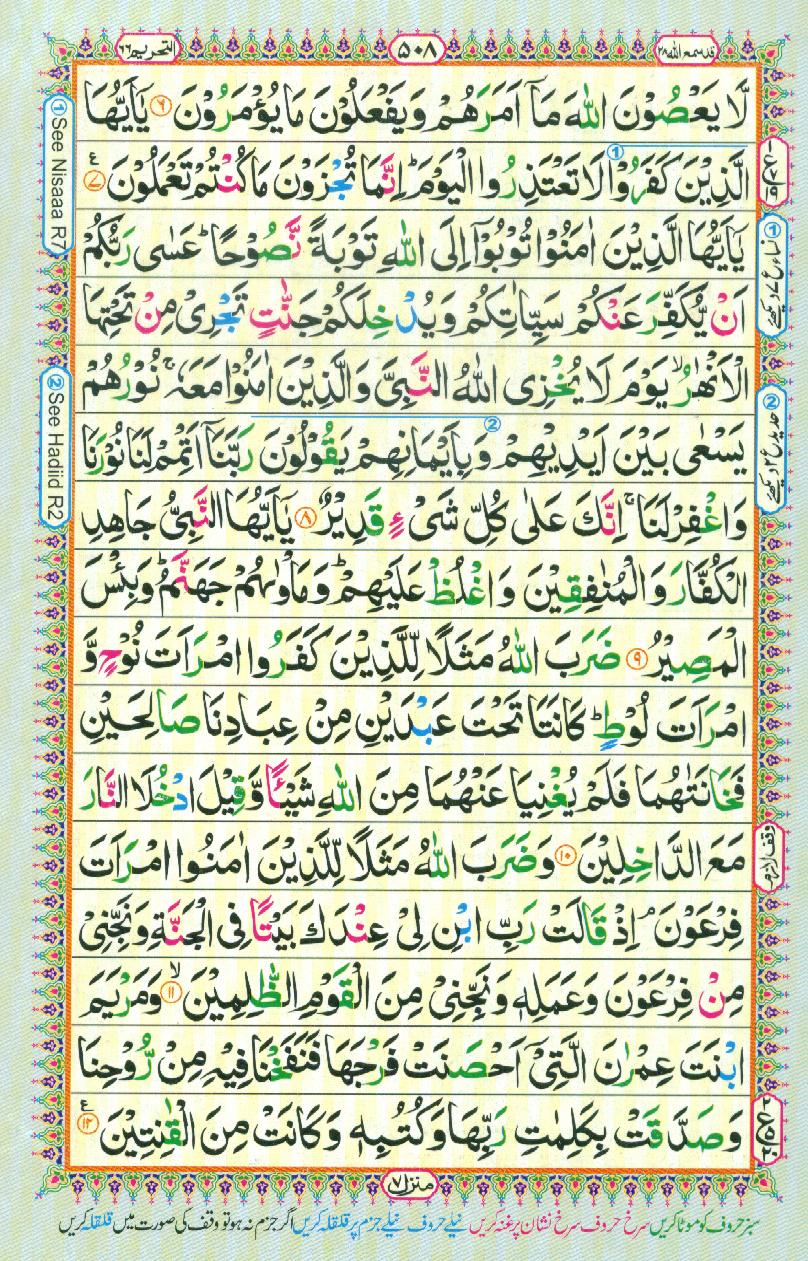 قدسمع الله ٢٨
٥٠٨
التحريم ٦٦
لَّا يَعْصُوْنَ اللّٰهَ مَآ اَمَرَهُمْ وَيَفْعَلُوْنَ مَا يُؤْمَرُوْنَ ۝٦ يٰٓاَيُّهَا
الَّذِيْنَ كَفَرُوْا لَا تَعْتَذِرُوا الْيَوْمَ ؕ اِنَّمَا تُجْزَوْنَ مَا كُنْتُمْ تَعْمَلُوْنَ ۝٧ ع
يٰٓاَيُّهَا الَّذِيْنَ اٰمَنُوْا تُوْبُوْٓا اِلَى اللّٰهِ تَوْبَةً نَّصُوْحًا ؕ عَسٰى رَبُّكُمْ
اَنْ يُّكَفِّرَ عَنْكُمْ سَيِّاٰتِكُمْ وَيُدْخِلَكُمْ جَنّٰتٍ تَجْرِىْ مِنْ تَحْتِهَا
الْاَنْهٰرُ ۙ يَوْمَ لَا يُخْزِى اللّٰهُ النَّبِىَّ وَالَّذِيْنَ اٰمَنُوْا مَعَهٗ ۚ نُوْرُهُمْ
يَسْعٰى بَيْنَ اَيْدِيْهِمْ وَبِاَيْمَانِهِمْ يَقُوْلُوْنَ رَبَّنَآ اَتْمِمْ لَنَا نُوْرَنَا
وَاغْفِرْ لَنَا ۚ اِنَّكَ عَلٰى كُلِّ شَىْءٍ قَدِيْرٌ ۝٨ يٰٓاَيُّهَا النَّبِىُّ جَاهِدِ
الْكُفَّارَ وَالْمُنٰفِقِيْنَ وَاغْلُظْ عَلَيْهِمْ ؕ وَمَاْوٰىهُمْ جَهَنَّمُ ؕ وَبِئْسَ
الْمَصِيْرُ ۝٩ ضَرَبَ اللّٰهُ مَثَلًا لِّلَّذِيْنَ كَفَرُوا امْرَاَتَ نُوْحٍ وَّ
امْرَاَتَ لُوْطٍ ؕ كَانَتَا تَحْتَ عَبْدَيْنِ مِنْ عِبَادِنَا صَالِحَيْنِ
فَخَانَتٰهُمَا فَلَمْ يُغْنِيَا عَنْهُمَا مِنَ اللّٰهِ شَيْـًٔا وَّقِيْلَ ادْخُلَا النَّارَ
مَعَ الدَّاخِلِيْنَ ۝١٠ وَضَرَبَ اللّٰهُ مَثَلًا لِّلَّذِيْنَ اٰمَنُوا امْرَاَتَ
فِرْعَوْنَ ۘ اِذْ قَالَتْ رَبِّ ابْنِ لِىْ عِنْدَكَ بَيْتًا فِى الْجَنَّةِ وَنَجِّنِىْ
مِنْ فِرْعَوْنَ وَعَمَلِهٖ وَنَجِّنِىْ مِنَ الْقَوْمِ الظّٰلِمِيْنَ ۙ۝١١ وَمَرْيَمَ
ابْنَتَ عِمْرٰنَ الَّتِىْٓ اَحْصَنَتْ فَرْجَهَا فَنَفَخْنَا فِيْهِ مِنْ رُّوْحِنَا
وَصَدَّقَتْ بِكَلِمٰتِ رَبِّهَا وَكُتُبِهٖ وَكَانَتْ مِنَ الْقٰنِتِيْنَ ۝١٢ ع
① نساء ع٧ دیکھئے
② حدید ع٢ دیکھئے
وقف لازم
① See Nisaaa R7
② See Hadiid R2
منزل ٧
سبز حروف کو موٹا کریں سرخ حروف سرخ نشان پر غنہ کریں نیلے حروف نیلے جزم پر قلقلہ کریں اگر جزم نہ ہو تو وقف کی صورت میں قلقلہ کریں